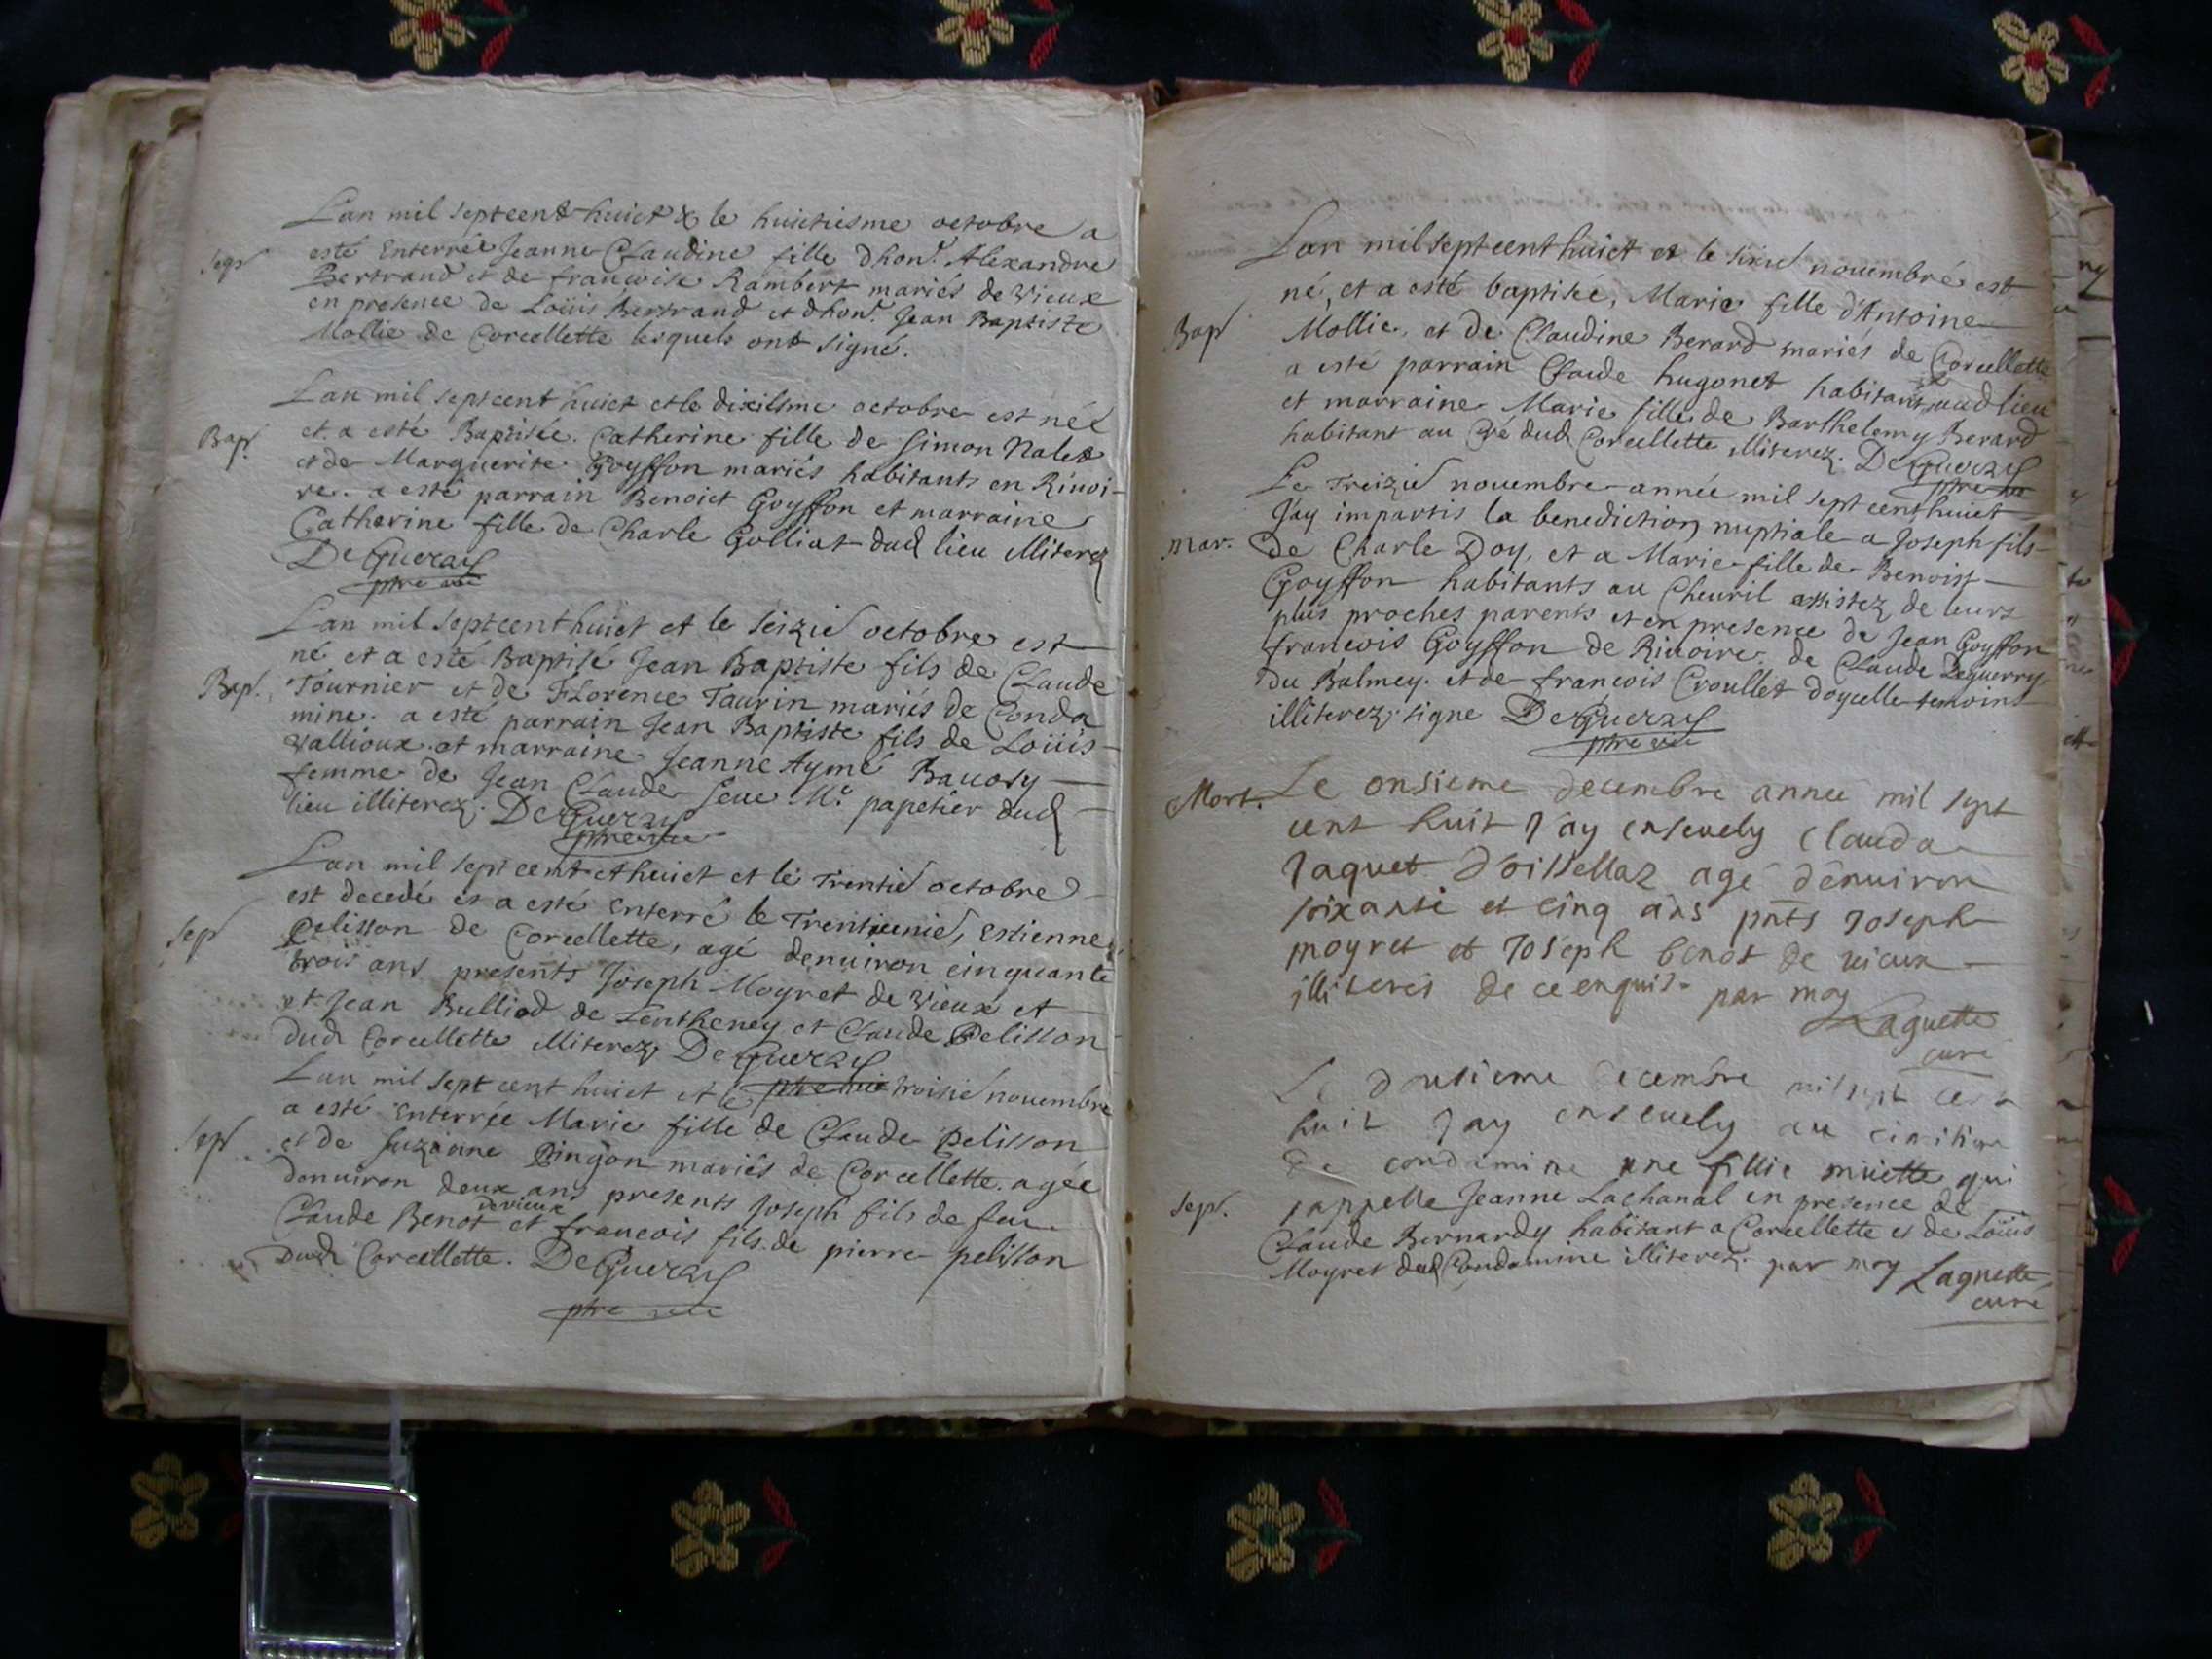 Lan mil septcent huict & le huictiesme octobre a
Sep
esté Enterrée Jeanne Claudine fille dhon. Alexandre
Bertrand et de francoise Rambert mariés de vieux
en presence de Loüis Bertrand et dhon. Jean Baptiste
Mollie de Corcellette lesquels ont signé.
Lan mil septcent huict et le dixiesme octobre est née
Bap.
et a esté Baptisée. Catherine fille de Simon Nalet
et de Marguerite Goyffon mariés habitants en Rivoi-
re. a esté parrain Benoict Goyffon et marraine
Catherine fille de Charle Golliat dud lieu illiterez
DeGuerry
ptre
Lan mil septcent huict et le seizie octobre est
né et a esté Baptisé Jean Baptiste fils de Claude
Bap.
Tournier et de Florence Taurin mariés de Conda
mine. a esté parrain Jean Baptiste fils de Loüis
vallioux et marraine Jeanne Aymé Bauosy
femme de Jean Claude seue Me. papetier dud
lieu illiterez. DeGuerry
ptre
Lan mil sept cent et huict et le Trentie octobre
est decedé et a esté enterré le Trentiunie, Estienne
Sep
Pelisson de Corcellette, agé denuiron cinquante
trois ans presents Joseph Moyret de vieux et
et Jean Bulliod de Lentheney et Claude Pelisson
dud Corcellette illiterez DeGuerry
Lan mil sept cent huict et le ptre troisie nouembre
a esté enterrée Marie fille de Claude Pelisson
Sep
et de Suzanne Pingon mariés de Corcellette. agée
denuiron deux ans presents Joseph fils de feu
de vieux
Claude Benot et francois fils de pierre pelisson
dud Corcellette. DeGuerry
ptre
Lan mil septcent huict et le nouembre est
né, et a esté baptisée, Marie fille d'Antoine
Bap
Mollie, et de Claudine Berard mariés de Corcellette
a esté parrain Claude hugonet habitant aud lieu
et marraine Marie fille de Barthelemy Berard
habitant au Cré dud Corcellette illiterez. DeGuerry
ptre
Le Treizie nouembre année mil sept cent huict
Jay impartis la benediction nuptiale a Joseph fils
Mar.
de Charle Doy, et a Marie fille de Benoist
Goyffon habitants au Cheuril assistez de leurs
plus proches parents et en presence de Jean Goyffon
francois Goyffon de Rivoire. de Claude Deguerry
du Balmey. et de francois Croullet doycelle temoins
illiterez. signe DeGuerry
ptre
Mort.
Le onsieme decembre annee mil sept
cent huit J'ay enseuely clauda
Jaquet D'oissellaz agé denuiron
soixante et cinq ans pnts Joseph
moyret et Joseph benot de vieux
illiterés de ce enquis par moy
Laguette
curé
Le dousieme decembre mil sept cent
huit Jay enseuely au cimitiere
de condamine une fillie müette qui
Sep.
sappelle Jeanne Lachanal en presence de
Claude Bernardy habitant a Corcellette et de Loüis
Moyret dud Condamine illiterez. par moy Laguette
curé